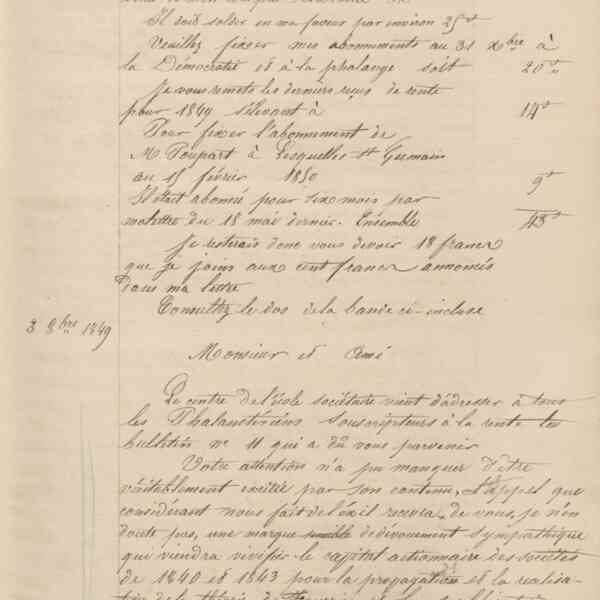 Il doit solder en ma faveur par environ 25 f
Veuillez fixer mes abonnements au 31 Xbre à
la Démocratie et à la phalange soit 20 f
Je vous remets les derniers reçus de rente
pour 1849 s'élevant à 14 f
Pour fixer l'abonnement de
M Poupart à Lesquelles St Germain
au 15 février 1850 9 f
Il était abonné pour six mois par
ma lettre du 18 mai dernier. Ensemble 43 f
Je resterais donc vous devoir 18 francs
que je joins aux cent francs annoncés
dans ma lettre
Consultez le dos de la bande ci-incluse
3 8bre 1849
Monsieur et Ami
Le centre de l'école sociétaire vient d'adresser à tous
les Phalanstériens souscripteurs à la rente les
bulletin n° 11 qui a dû vous parvenir
Votre attention n'a pu manquer d'être
véritablement excitée par son contenu, L'appel que
considerant nous fait de l'exil recevra de vous, je n'en
doute pas, une marque de dévouement sympathique
qui viendra vivifier le capital actionnaire des sociétés
de 1840 et 1843 pour la propagation et la réalisa-